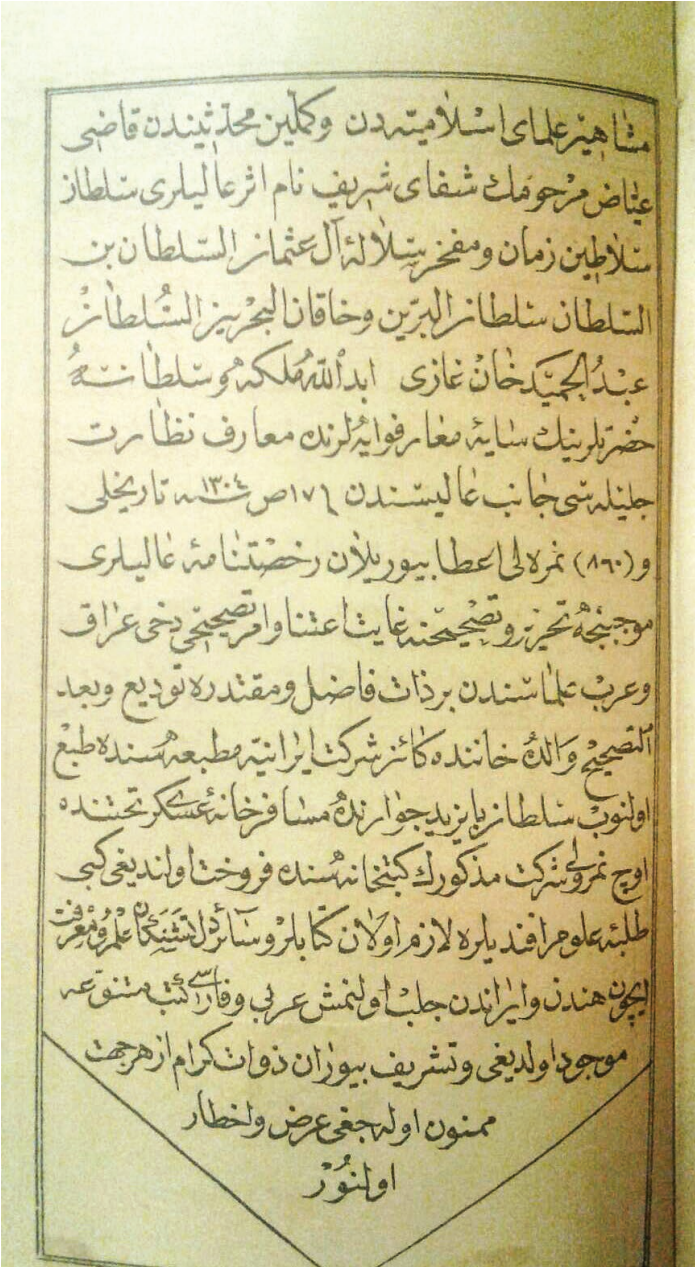 مشاهیر علمای اسلامیه‌دن وکملین محدثیندن قاضی
عیاض مرحومك شفای شریف نام اثر عالیلری سلطان
سلاطین زمان ومفخر سلالهٔ آل عثمان السلطان بن
السلطان سلطان البرین وخاقان البحرین السلطان
عبد الحمید خان غازی ابد الله ملکه وسلطانته
حضرتلرینك سایهٔ معارفوایه‌لرنده معارف نظارت
جلیله‌سی جانب عالیسندن ١٧ ص ١٣٠٤ سنه تاریخلی
و (٨٦٠) نمره‌لی اعطا بیوریلان رخصتنامهٔ عالیلری
موجبنجه تحریر وتصحیحنه غایت اعتنا وامر تصحیحی دخی عراق
وعرب علماسندن بر ذات فاضل ومقتدره تودیع وبعد
التصحیح والده خاننده کائن شرکت ایرانیه مطبعه‌سنده طبع
اولنوب سلطان بایزید جوارنده مسافرخانهٔ عسکری تحتنده
اوچ نمرولی شرکت مذکورك کتبخانه‌سنده فروخت اولندیغی کبی
طلبهٔ علوم افندیلره لازم اولان کتابلر وسائر دل تشنگان علم ومعرفت
ایچون هندن وایراندن جلب اولنمش عربی وفارسی کتب متنوعه
موجود اولدیغی وتشریف بیوران ذوات کرام از هر جهت
ممنون اوله‌جغی عرض واخطار
اولنور